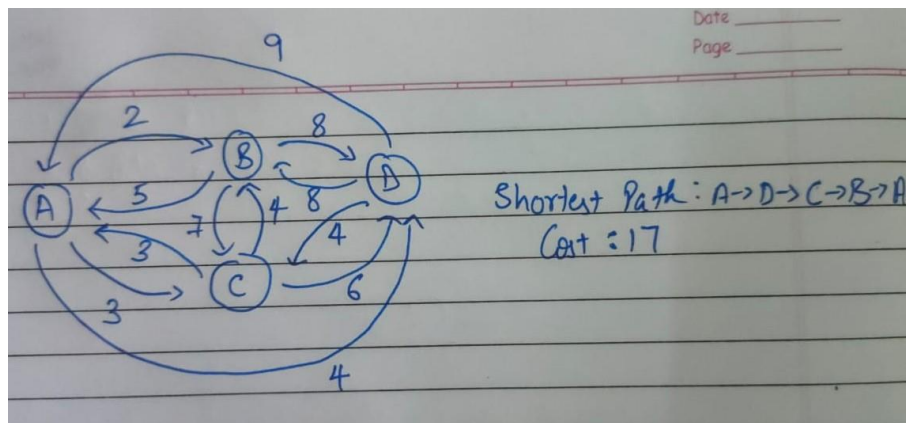 Date
Page
9
2
B
8
D
A
5
7
4
8
3
4
C
3
6
4
Shortest Path : A→D→C→B→A
Cost : 17